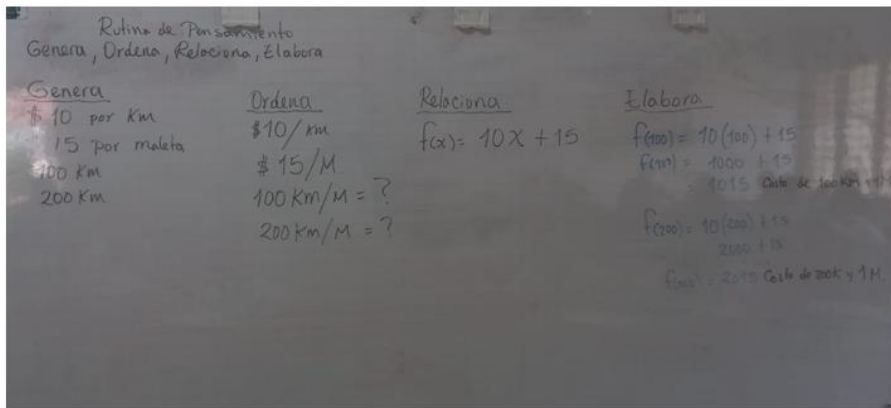 Rutina de Pensamiento
Genera, Ordena, Relaciona, Elabora
Genera
$ 10 por Km
15 por maleta
100 Km
200 Km
Ordena
$10/Km
$ 15/M
100 Km/M = ?
200 Km/M = ?
Relaciona
f(x)= 10X + 15
Elabora
f(100)= 10(100) + 15
f(100) = 1000 + 15
= 1015 Costo de 100 Km y 1M
f(200)= 10(200) + 15
2000 + 15
f(200) = 2015 Costo de 200K y 1M.